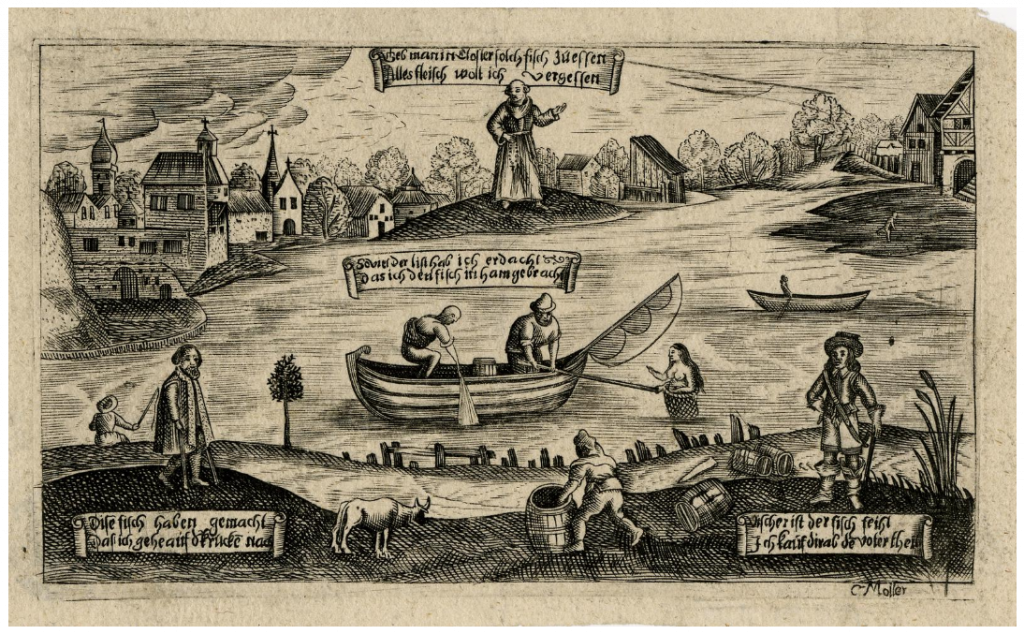 Geb man in Closter solch fisch zu essen
Alles fleisch wolt ich vergessen
Soviel der list hab ich erdacht
Das ich den fisch in ham gebracht
Dise fisch haben gemacht
Das ich gehe auf d krucke nach
Vischer ist der fisch feihl
Ich kauf dir ab de
C Moller